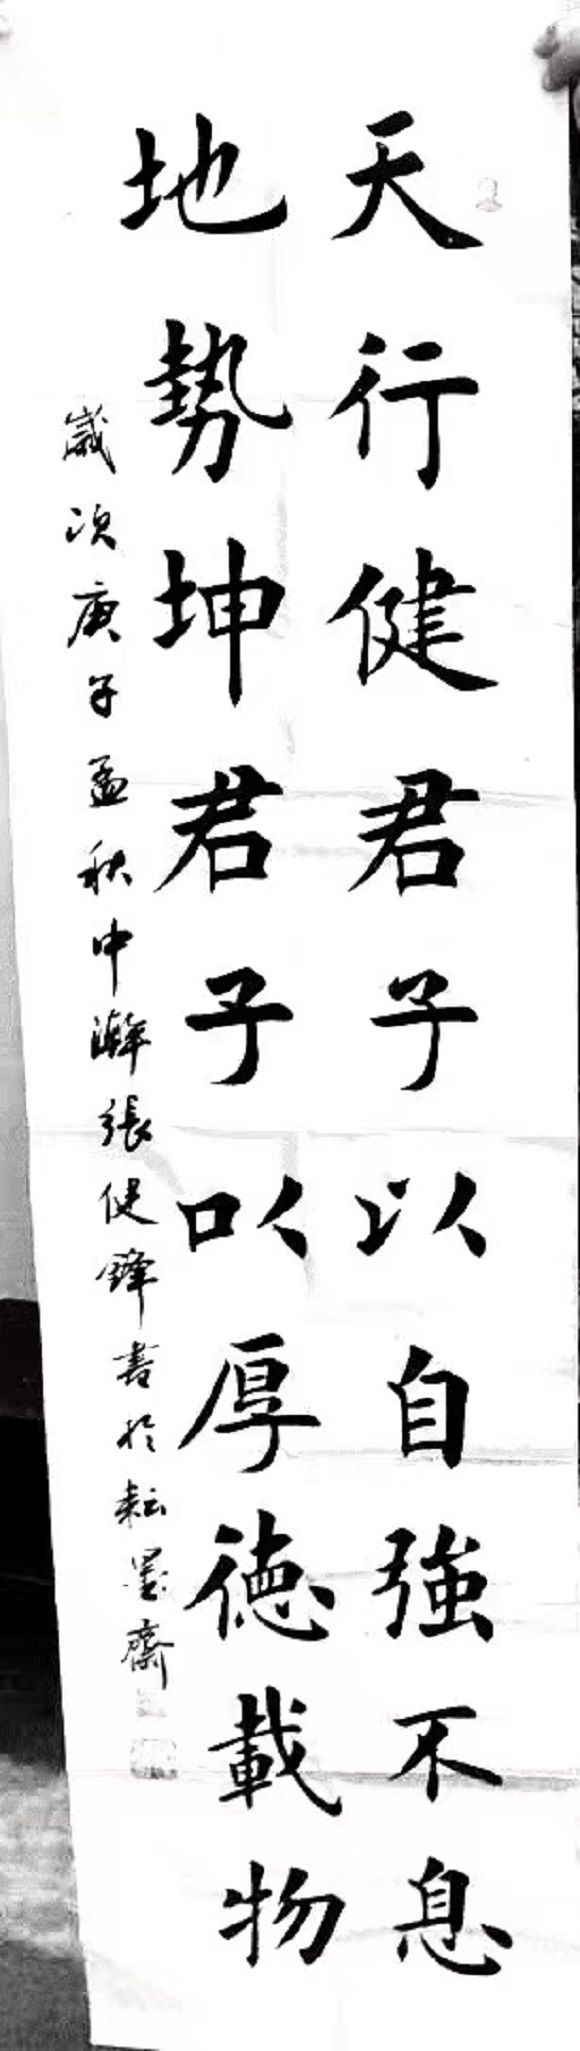 天行健君子以自強不息
地勢坤君子以厚德載物
歲次庚子孟秋中澣張健鋒書於耘墨齋